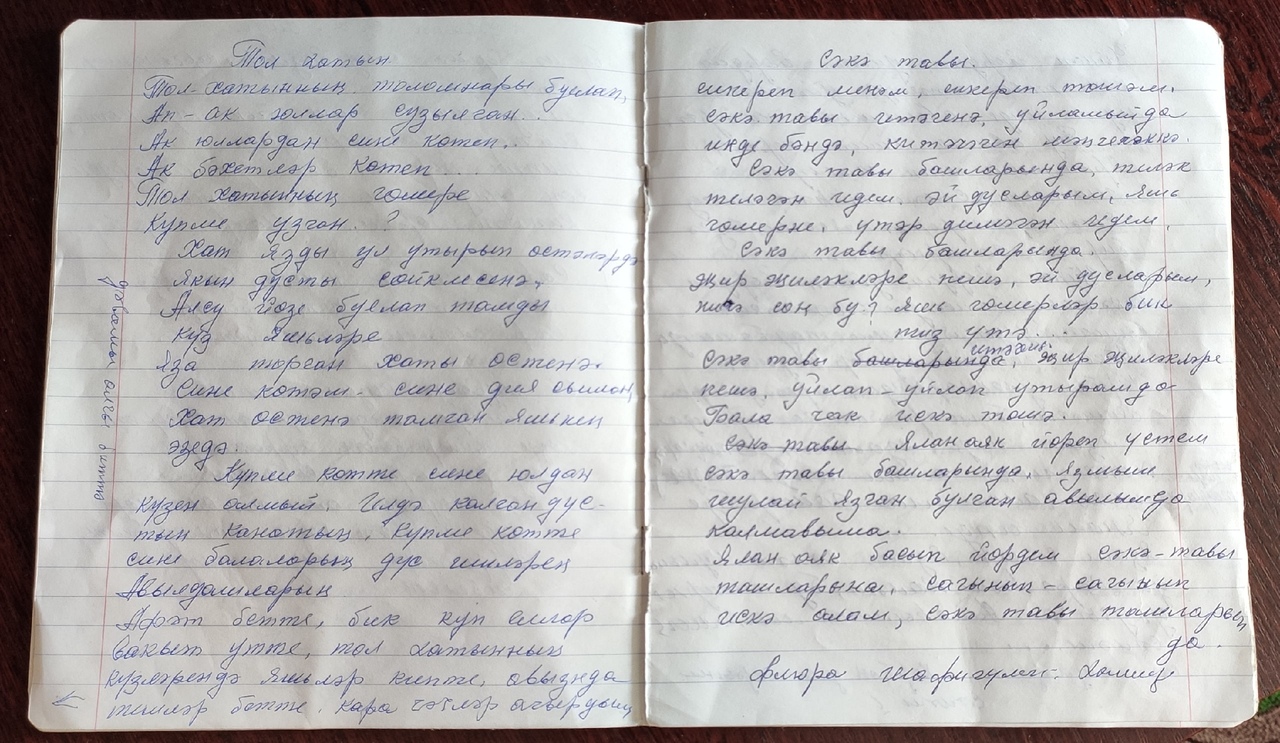 Тол хатын
Тол хатынның толомнары буелап,
Ап-ак юллар сузылган...
Ак юллардан сине көтеп...
Ак бәхетләр көтеп...
Тол хатынның гомере
Күпме узган.?
Хат язды ул утырып өстәлгә
якын дусты сөйклесенә,
Алсу йөзе буелап тамды
күз яшьләре
яза торган хаты өстенә.
Сине көтәм. сине дия
Хат өстенә тамган яшькен
эзедә.
Күпме көтте сине юлдан
күзен алмый. Илдә калган дус-
тың канатың. Күпме көтте
сине балаларың дус ишләрең
Авылдашларың
Афәт бетте, бик күп еллар
вакыт үтте, тол хатынның
күзләрендә яшьләр кипте, авызнда
тешләр бетте. Кара чәчләр агардың
дәвамы алгы биттә
Сәкә тавы.
сикереп менәм, сикереп төшәм,
сәкә тавы итәгенә, уйламыйда
инде бәндә, китәчәген мәңгелеккә.
Сәкә тавы башларында, теләк
теләгән идем, әй дусларым, яшь
гомерне, үтәр димәгән идем,
Сәкә тавы башларында.
җир җиләкләре пешә, әй дусларым,
нигә соң бу? яшь гомерләр бик
тиз үтә...
Сәкә тавы башларында, итәгендә җир җиләкләре
пешә, уйлап-уйлап утырамда
Бала чак искә төшә.
Сәкә тавы Ялан аяк йөреп үстем
сәкә тавы башларында, язмыш
шулай язган булган авылымда
калмавыма.
Ялан аяк басып йөрдем сәкә-тавы
ташларына, сагынып-сагынып
искә алам, сәкә тавы ташларын
да.
Флюра Шафигуллина